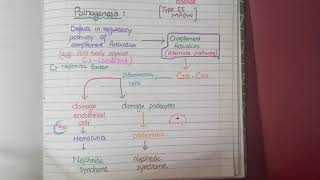 disease
Pathogenesis:
[Type II
MPGN]
Defects in regulatory
pathway of
complement Activation
(e.g: Anti body against
C3-convertase)
Complement
Activation
(Alternate pathway)
C3-Nephritic factor
inflammatory
cells
C3a, C5a
damage
endothelial
cells
damage podocytes
Hematuria
proteinuria
Nephritic
syndrome
Nephrotic
syndrome